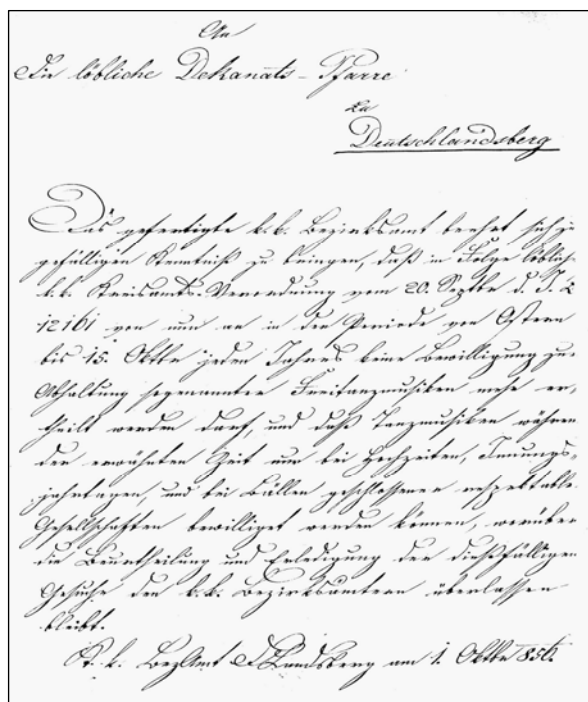 An
Die löbliche Dekanats-Pfarre
zu
Deutschlandsberg
Das gefertigte k.k. Bezirksamt beehrt sich zu
gefälligen Kenntniß zu bringen, daß in Folge löblich
k.k. Kreisamts-Verordnung vom 20. Septbr d. J. Z
12161 von nun an in der Periode von Ostern
bis 15. Oktbr jeden Jahres keine Bewilligung zur
Abhaltung sogenannter Freitanzmusiken mehr er-
theilt werden darf, und daß Tanzmusiken währen
der erwähnten Zeit nur bei Hochzeiten, Innungs-
jahrtagen, und bei Bällen geschlossener respektable
Gesellschaften bewilliget werden können, worüber
die Beurtheilung und Erledigung der dießfälligen
Gesuche den k.k. Bezirksämtern überlassen
bleibt.
K. k. BezAmt D Landsberg am 1. Oktbr 856.